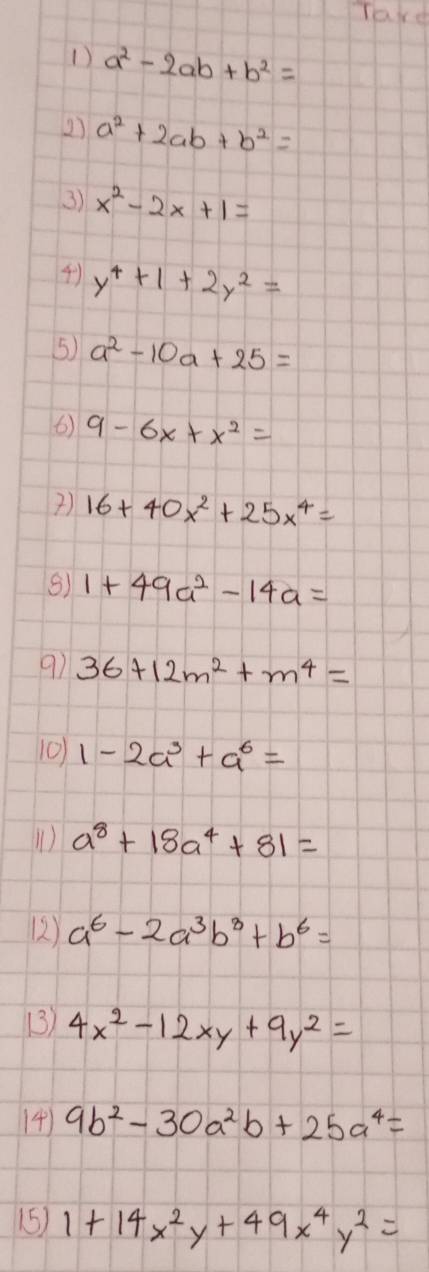 1) a² - 2ab + b² =
2) a² + 2ab + b² =
3) x² - 2x + 1 =
4) y⁴ + 1 + 2y² =
5) a² - 10a + 25 =
6) 9 - 6x + x² =
7) 16 + 40x² + 25x⁴ =
8) 1 + 49a² - 14a =
9) 36 + 12m² + m⁴ =
10) 1 - 2a³ + a⁶ =
11) a⁸ + 18a⁴ + 81 =
12) a⁶ - 2a³b³ + b⁶ =
13) 4x² - 12xy + 9y² =
14) 9b² - 30a²b + 25a⁴ =
15) 1 + 14x²y + 49x⁴y² =